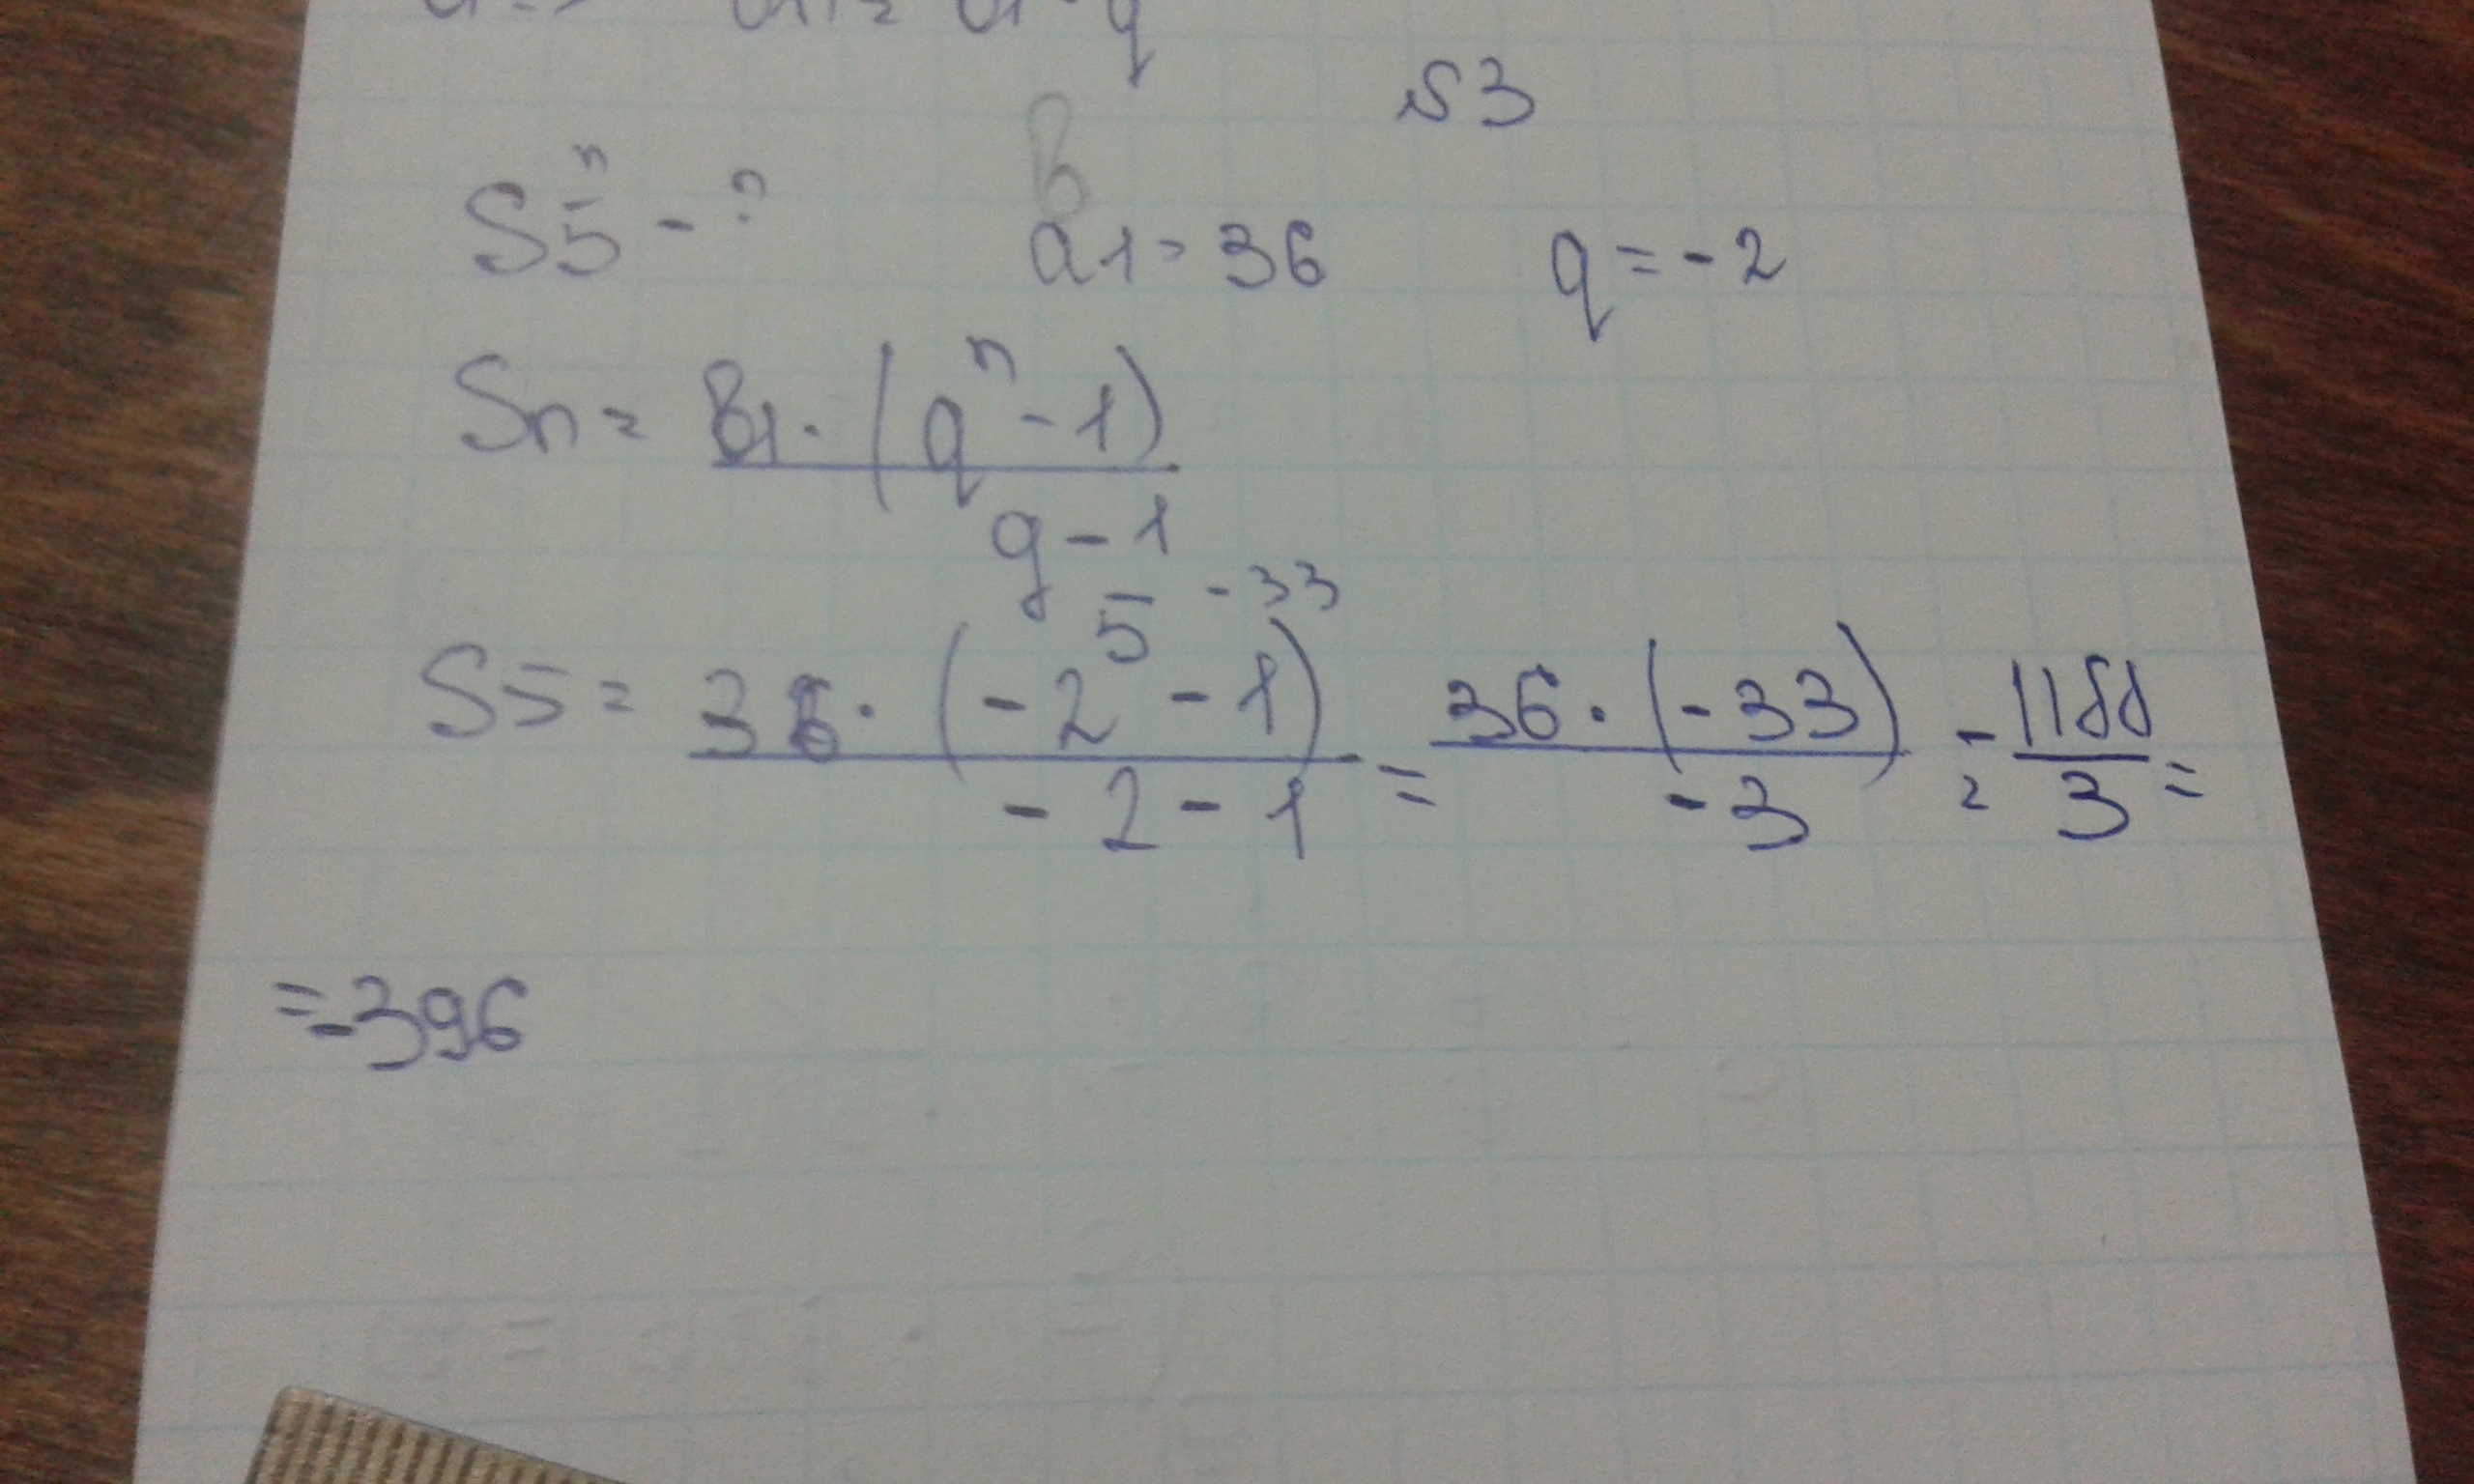 S3
S5 - ? a1 = 36 q = -2
Sn = B1 · (q^n - 1) / q - 1
S5 = 36 · (-2^5 - 1) / -2 - 1 = 36 · (-33) / -3 = - 1188 / 3 =
-33
= -396